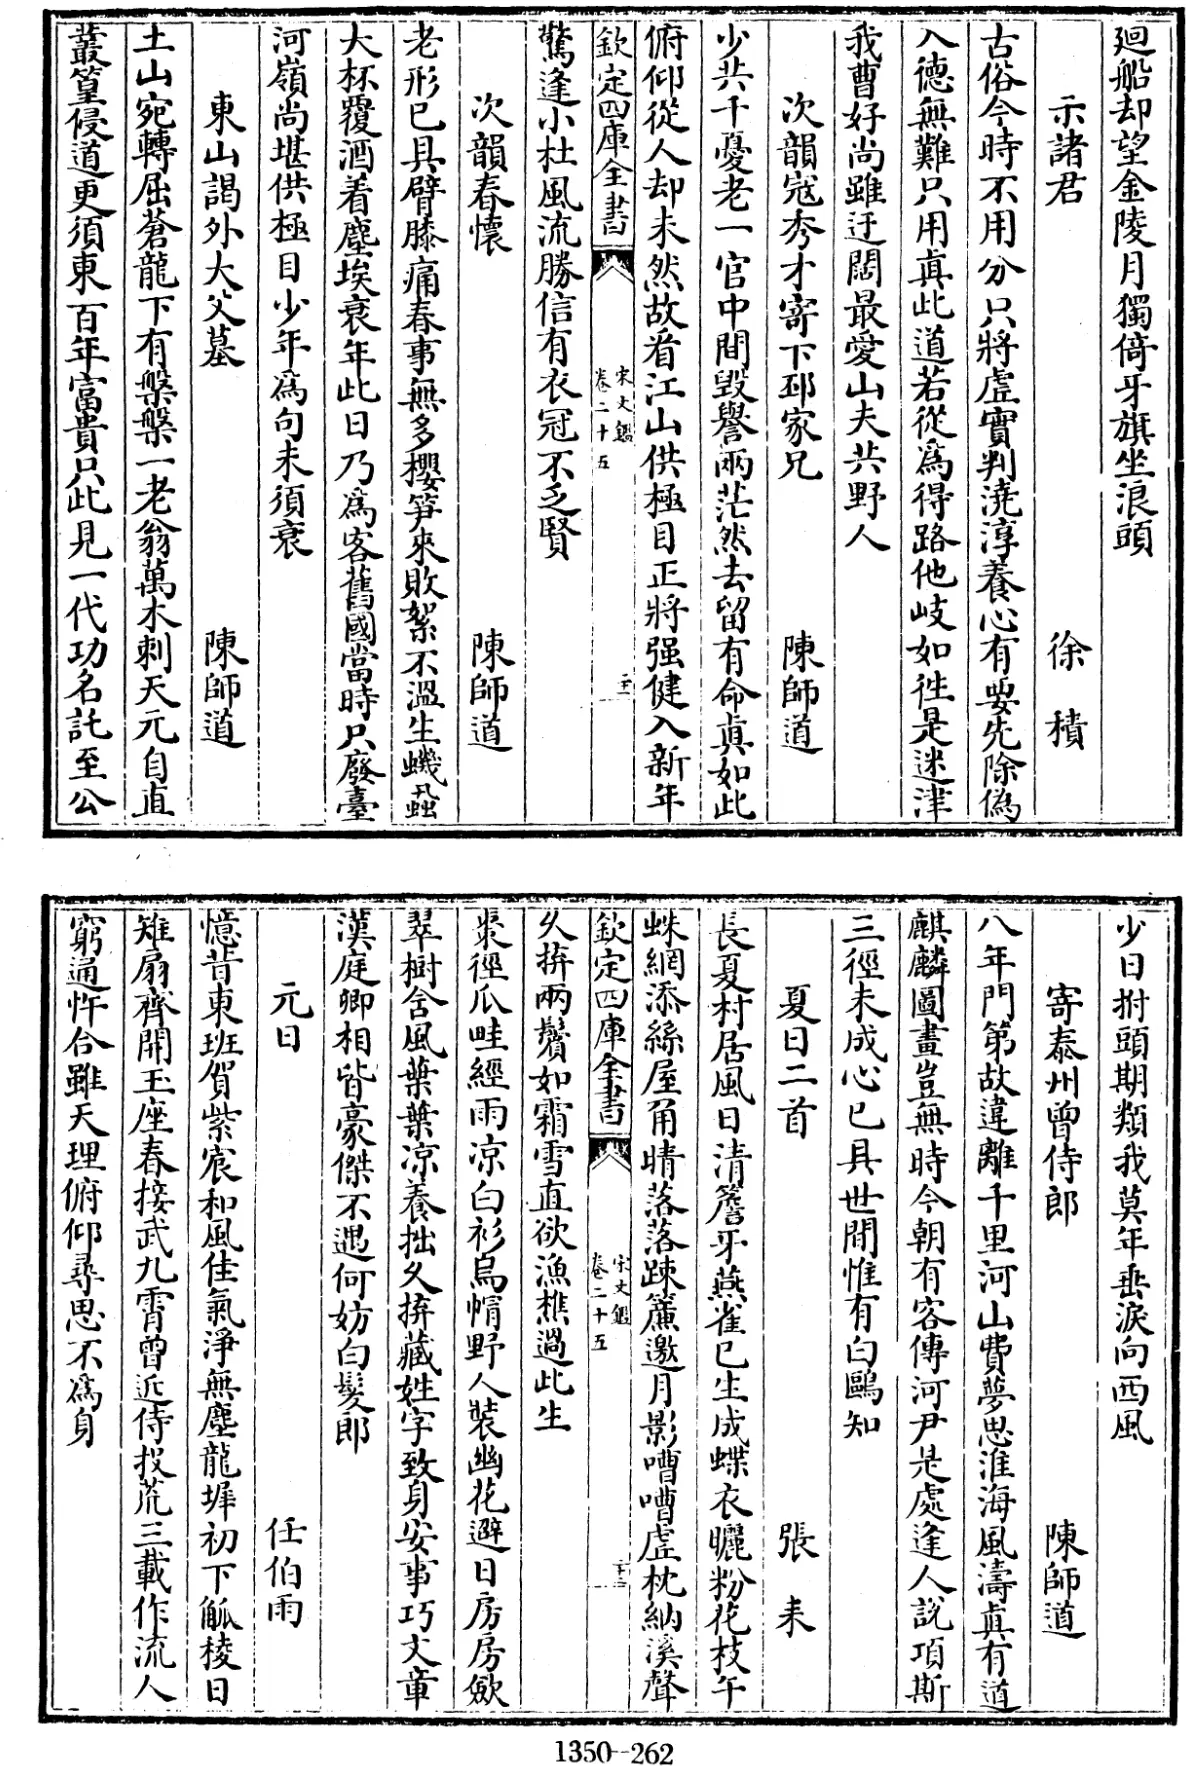 廻船却望金陵月獨倚牙旗坐浪頭
示諸君 徐積
古俗今時不用分只將虛實判澆淳養心有要先除偽
入德無難只用真此道若從為得路他岐如徃是迷津
我曹好尚雖迂闊最愛山夫共野人
次韻寇秀才寄下邳家兄 陳師道
少共千憂老一官中間毀譽兩茫然去留有命真如此
俯仰從人却未然故看江山供極目正將强健入新年
欽定四庫全書 宋文鑑 卷二十五 二十一
驚逢小杜風流勝信有衣冠不乏賢
次韻春懷 陳師道
老形已具臂膝痛春事無多櫻笋來敗絮不溫生蟣蝨
大杯覆酒着塵埃衰年此日乃為客舊國當時只廢臺
河嶺尚堪供極目少年為句未須哀
東山謁外大父墓 陳師道
土山宛轉屈蒼龍下有槃槃一老翁萬木刺天元自直
叢篁侵道更須東百年富貴只此見一代功名託至公
少日拊頭期類我莫年垂淚向西風
寄泰州曾侍郎 陳師道
八年門第故違離千里河山費夢思淮海風濤真有道
麒麟圖畫豈無時今朝有客傳河尹是處逢人說項斯
三徑未成心已具世間惟有白鷗知
夏日二首 張耒
長夏村居風日清簷牙燕雀已生成蝶衣曬粉花枝午
蛛網添絲屋角晴落落疎簾邀月影嘈嘈虛枕納溪聲
欽定四庫全書 宋文鑑 卷二十五 二十二
久拚兩鬢如霜雪直欲漁樵過此生
棗徑瓜畦經雨凉白衫烏帽野人裝幽花避日房房斂
翠樹含風葉葉凉養拙久拚藏姓字致身安事巧文章
漢庭卿相皆豪傑不遇何妨白髮郎
元日 任伯雨
憶昔東班賀紫宸和風佳氣淨無塵龍墀初下觚稜日
雉扇齊開玉座春接武九霄曾近侍投荒三載作流人
窮通忤合雖天理俯仰尋思不為身
1350-262